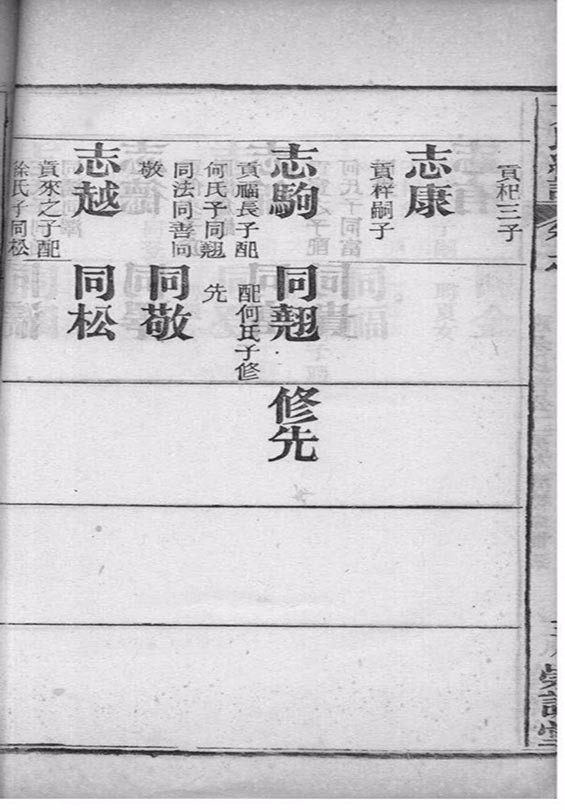 貢祀三子
志康
貢祥嗣子
志駒
貢福長子配
何氏子同翹
同法同善同
敬
志越
貢來之子配
徐氏子同松
同翹
配何氏子修
先
同敬
同松
修先